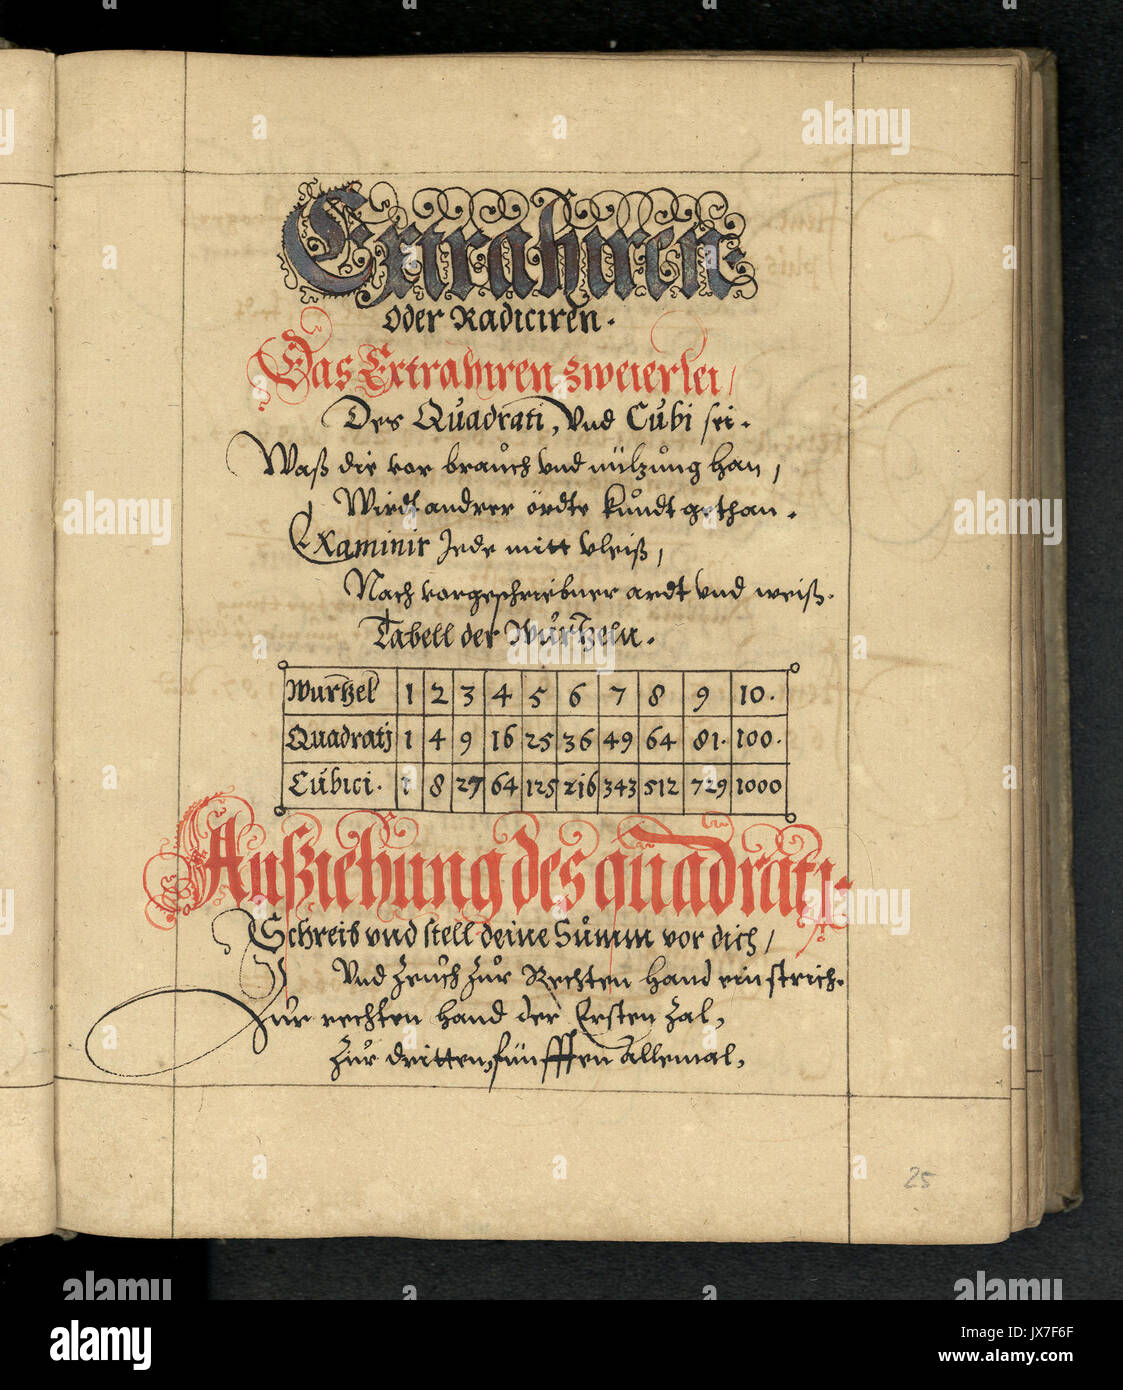 Extrahiren
oder Radiciren.
Das Extrahiren zweierlei /
Des Quadrati, Und Cubi sei.
Waß die vor brauch vnd nützung han /
Wirdt andrer ördte kundt gethan.
Examinir Jede mitt vleiß /
Nach vorgeschriebner ardt vnd weiß.
Tabell der Wurtzeln.
Wurtzel 1 2 3 4 5 6 7 8 9 10.
Quadratj 1 4 9 16 25 36 49 64 81. 100.
Cubici. 1 8 27 64 125 216 343 512 729 1000
Außziehung des quadrati.
Schreib vnd stell deine Summ vor dich /
Vnd Zeuch Zur Rechten Hand ein strich.
Zur rechten hand der Ersten Zal,
Zur dritten, fünfften Allemal,
25
alamy
Image ID: JX7F6F
www.alamy.com